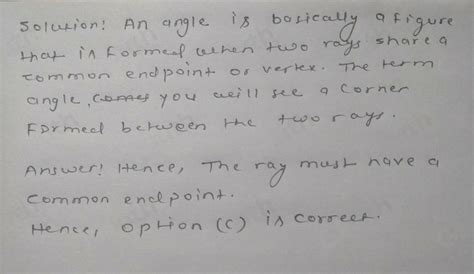 Solution: An angle is basically a figure
that is formed when two rays share a
common endpoint or vertex. The term
angle, comes you will see a corner
Formed between the two rays.
Answer: Hence, The ray must have a
common endpoint.
Hence, option (c) is correct.